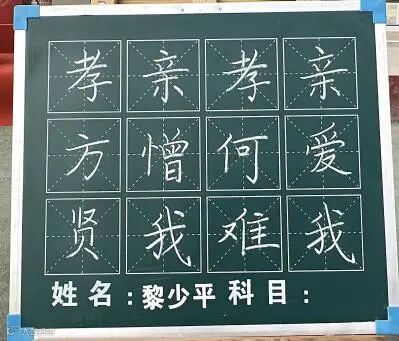 孝亲孝亲
方憎何爱
贤我难我
姓名:黎少平科目: